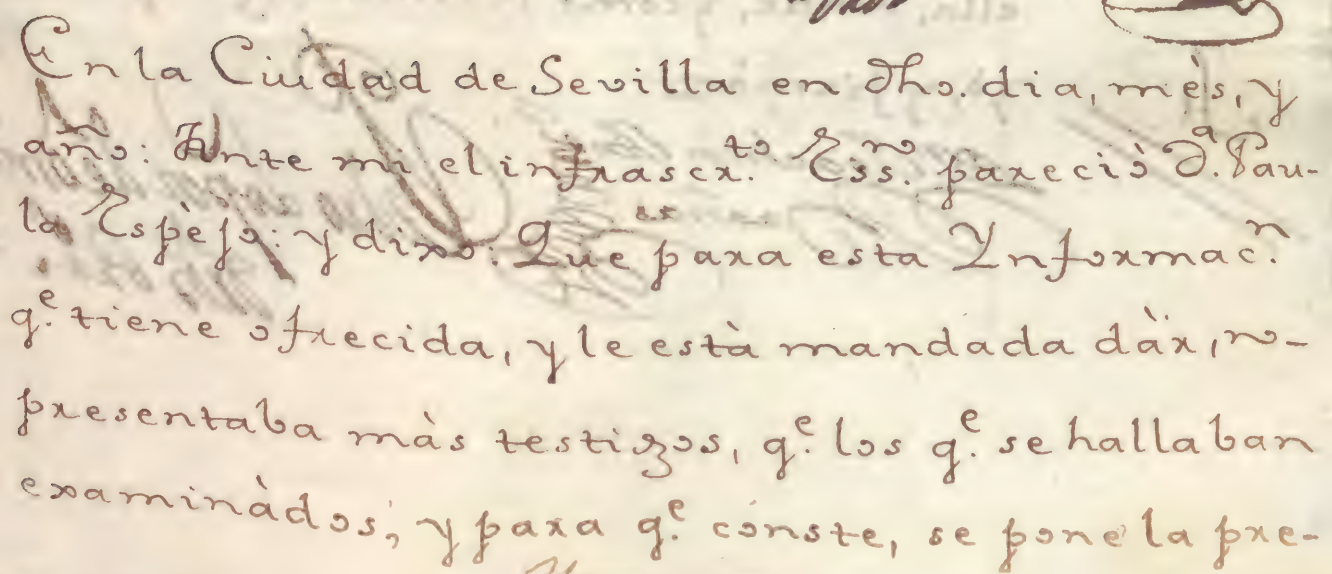 En la Ciudad de Sevilla en dho. dia, mès, y
año: Ante mi el infrascr.to Ess.no pareciò D.a Pau-
la Espèjo: y dixo: Que para esta Ynformac.n
q.e tiene ofrecida, y le està mandada dàr, no
presentaba màs testigos, q.e los q.e se hallaban
examinàdos; y para q.e conste, se pone la pre-